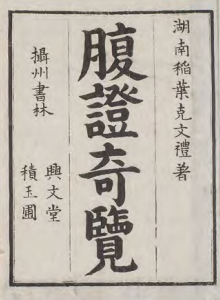 湖南稲葉克文禮著
腹證奇覽
攝州書林
興文堂
積玉圃